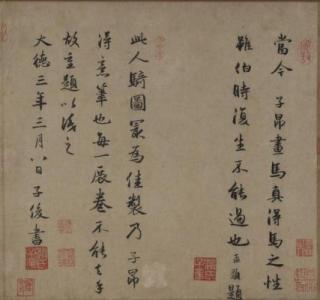 當今子昂畫馬真得馬之性
雖伯時復生不能過也孟籲題
此人騎圖冣為佳製乃子昂
得意筆也每一展卷不能去手
故重題以識之
大德三年三月八日子俊書